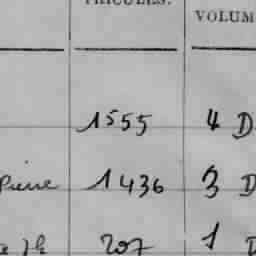 TRICULES. VOLUM
1555 4 D
Pierre 1436 3 D
207 1 D